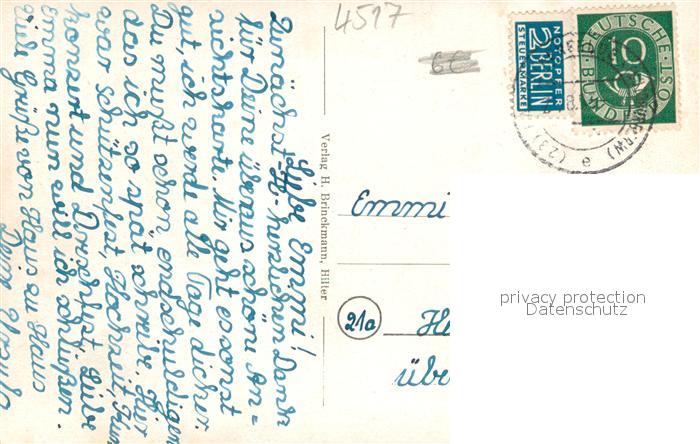 Liebe Emmi!
Zunächst herzlichen Dank
für Deine überaus schöne An=
sichtskarte. Mir geht es sonst
gut, ich werde alle Tage dicker.
Du mußt schon endschuldigen
das ich so spät schreibe. Hier
war Schützenfest, Hochzeit,
Konzert und Dorffest. Liebe
Emma nun will ich schließen.
Viele Grüße von Haus zu Haus
Deine Ursula
Verlag H. Brinckmann, Hilter
4517
6C
NOTOPFER
2 BERLIN
STEUERMARKE
DEUTSCHE
BUNDESPOST
10
(23)
e
Emmi
21a
übe
privacy protection
Datenschutz